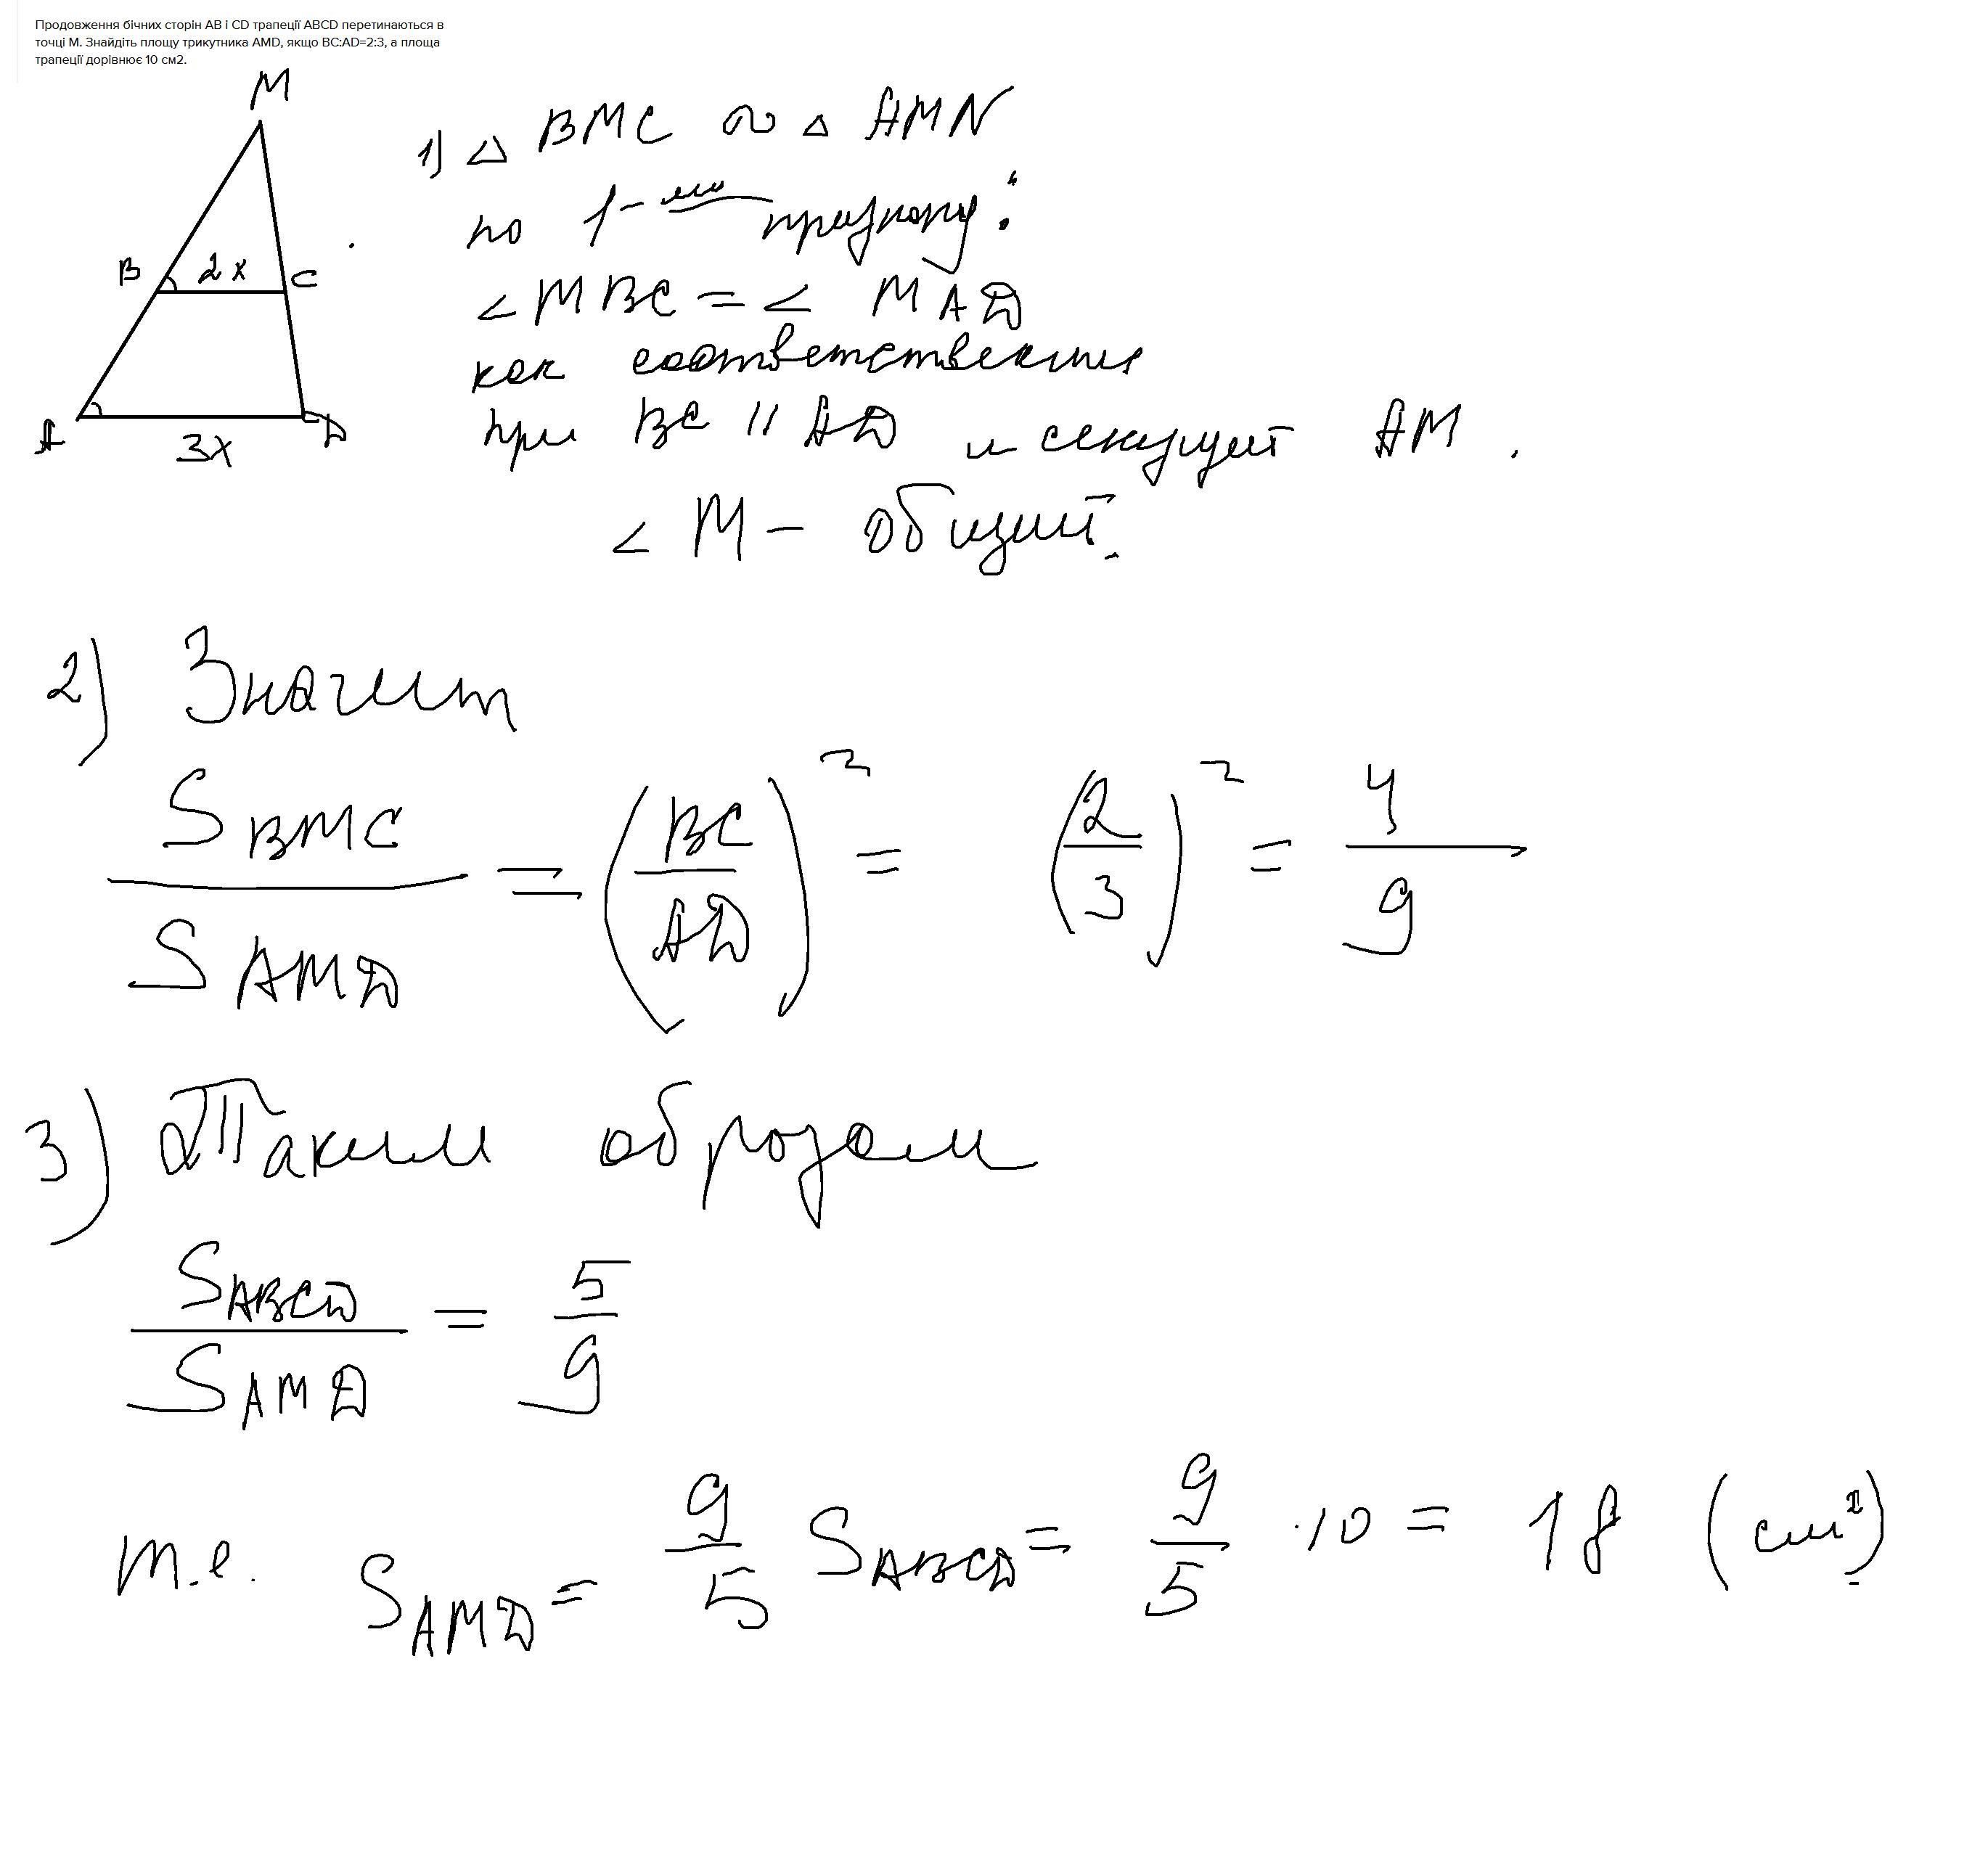 Продовження бічних сторін AB і CD трапеції ABCD перетинаються в
точці M. Знайдіть площу трикутника AMD, якщо BC:AD=2:3, а площа
трапеції дорівнює 10 см2.
M
B 2x C
A 3x D
1) △ BMC ∾ △ AMN
по 1-му признаку:
∠ MBC = ∠ MAD
как соответственные
при BC || AD и секущей AM.
∠ M - общий.
2) Значит
S BMC / S AMD = (BC / AD)² = (2/3)² = 4/9
3) Таким образом
S ABCD / S AMD = 5/9
т.е. S AMD = 9/5 S ABCD = 9/5 · 10 = 18 (см²)